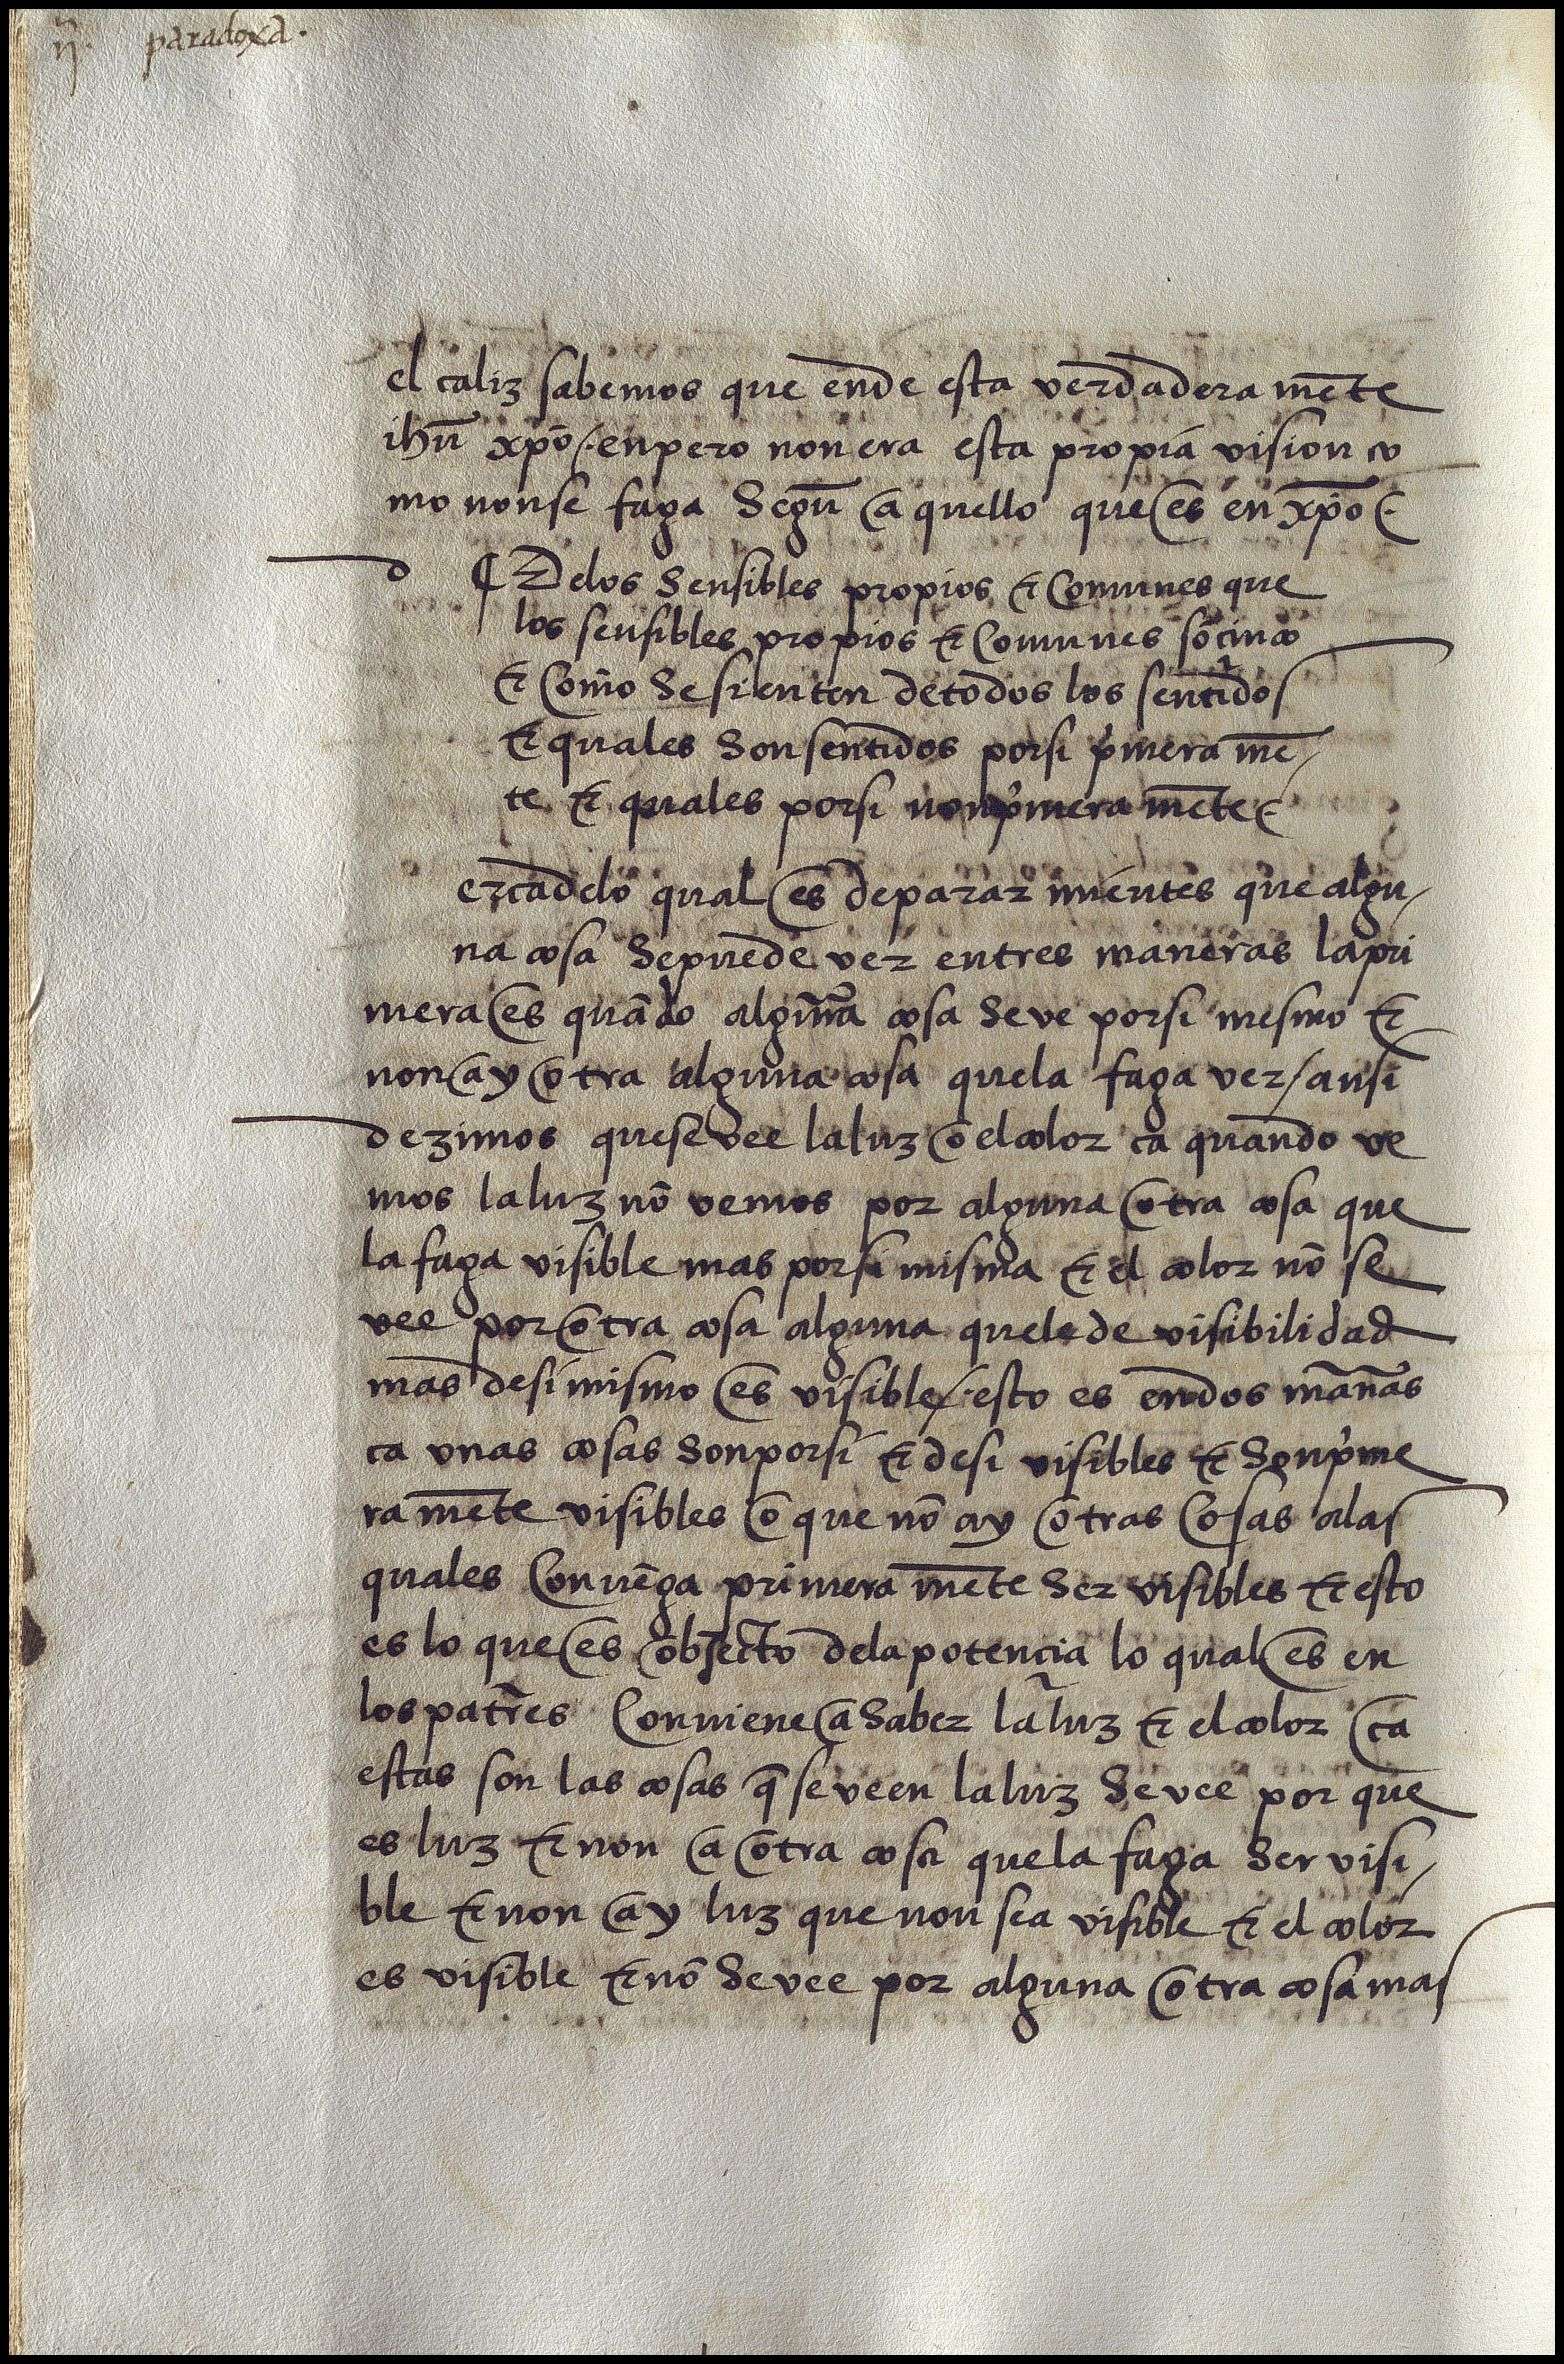 ij. paradoxa.
el caliz sabemos que ende esta verdadera mẽte
ihũ xp̃o (. enpero non era esta propia vision co
mo non se faga Segũ a quello que es en xp̃o (.
d ¶ Delos Sensibles propios & Comunes que
los sensibles propios & Comunes sõ cinco
& Como Se sienten de todos los sentidos
& quales Son sentidos por si p'mera mẽ/
te & quales por si non p'mera mẽte (.
erca delo qual es de parar mientes que algu/
na cosa Se puede ver en tres maneras la pri
mera es quãdo algũna cosa Se ve por si mesmo &
non ay otra alguna cosa que la faga ver / ansi
dezimos que se vee la luz o el color ca quando ve
mos la luz nõ vemos por alguna otra cosa que
la faga visible mas por si misma & el color nõ se
vee por otra cosa alguna que le de visibilidad
mas de si mismo es visible /. esto es en dos mãnas
ca unas cosas Son por si & de si visibles & Son p'me
ra mẽte visibles o que nõ ay otras Cosas a las
quales Convẽga primera mẽte Ser visibles & esto
es lo que es objecto dela potencia lo qual es en
los patr̃es Conviene a Saber la luz & el color ca
estas son las cosas q̃ se veen la luz Se vee por que
es luz & non a otra cosa que la faga Ser visi/
ble & non ay luz que non sea visible & el color
es visible & nõ Se vee por alguna otra cosa mas